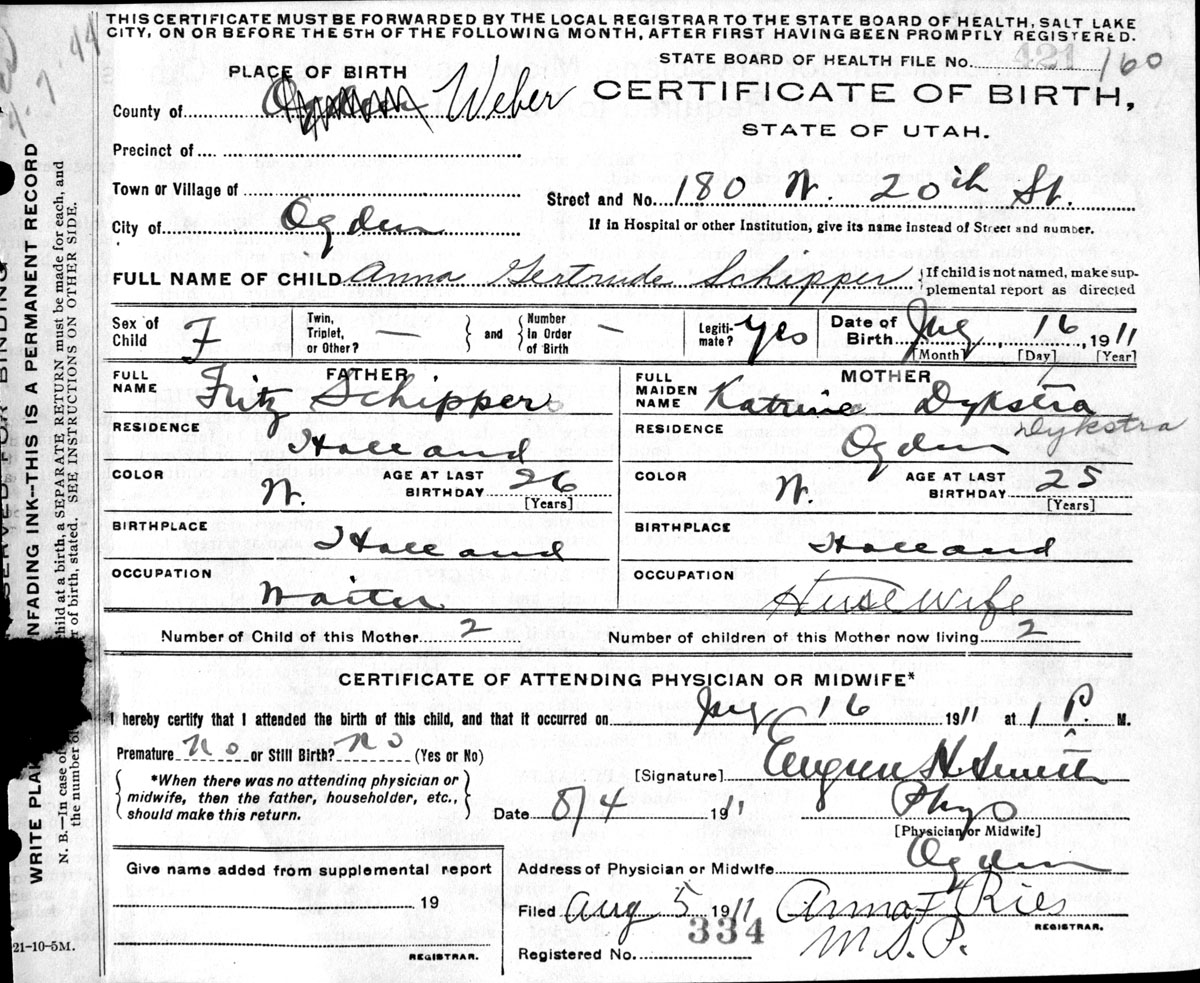 THIS CERTIFICATE MUST BE FORWARDED BY THE LOCAL REGISTRAR TO THE STATE BOARD OF HEALTH, SALT LAKE
CITY, ON OR BEFORE THE 5TH OF THE FOLLOWING MONTH, AFTER FIRST HAVING BEEN PROMPTLY REGISTERED.
STATE BOARD OF HEALTH FILE No. 421 160
PLACE OF BIRTH
CERTIFICATE OF BIRTH,
County of Weber
STATE OF UTAH.
Precinct of
Town or Village of
Street and No. 180 W. 20th St.
City of Ogden
If in Hospital or other Institution, give its name instead of Street and number.
FULL NAME OF CHILD Anna Gertrude Schipper
If child is not named, make sup-
plemental report as directed
Sex of Child F
Twin, Triplet, or Other? —
and Number in Order of Birth —
Legiti-mate? Yes
Date of Birth July 16, 1911
[Month] [Day] [Year]
FATHER
FULL NAME Fritz Schipper
RESIDENCE Holland
COLOR W.
AGE AT LAST BIRTHDAY 26
[Years]
BIRTHPLACE Holland
OCCUPATION Waiter
MOTHER
FULL MAIDEN NAME Katrina Dykstra
Dykstra
RESIDENCE Ogden
COLOR W.
AGE AT LAST BIRTHDAY 25
[Years]
BIRTHPLACE Holland
OCCUPATION Housewife
Number of Child of this Mother 2 Number of children of this Mother now living 2
CERTIFICATE OF ATTENDING PHYSICIAN OR MIDWIFE*
I hereby certify that I attended the birth of this child, and that it occurred on July 16 1911 at 1 P. M.
Premature No or Still Birth? No (Yes or No)
*When there was no attending physician or
midwife, then the father, householder, etc.,
should make this return.
[Signature] Eugene H. Smith
Date 8/4 1911 Phys
[Physician or Midwife]
Address of Physician or Midwife Ogden
Give name added from supplemental report
19
REGISTRAR.
Filed Aug 5 1911 Anna F Ries
REGISTRAR.
M.S.P.
Registered No. 334
21-10-5M.
WRITE PLAI
NFADING INK—THIS IS A PERMANENT RECORD
N. B.—In case of
child at a birth, a SEPARATE RETURN must be made for each, and
the number of
r of birth, stated. SEE INSTRUCTIONS ON OTHER SIDE.